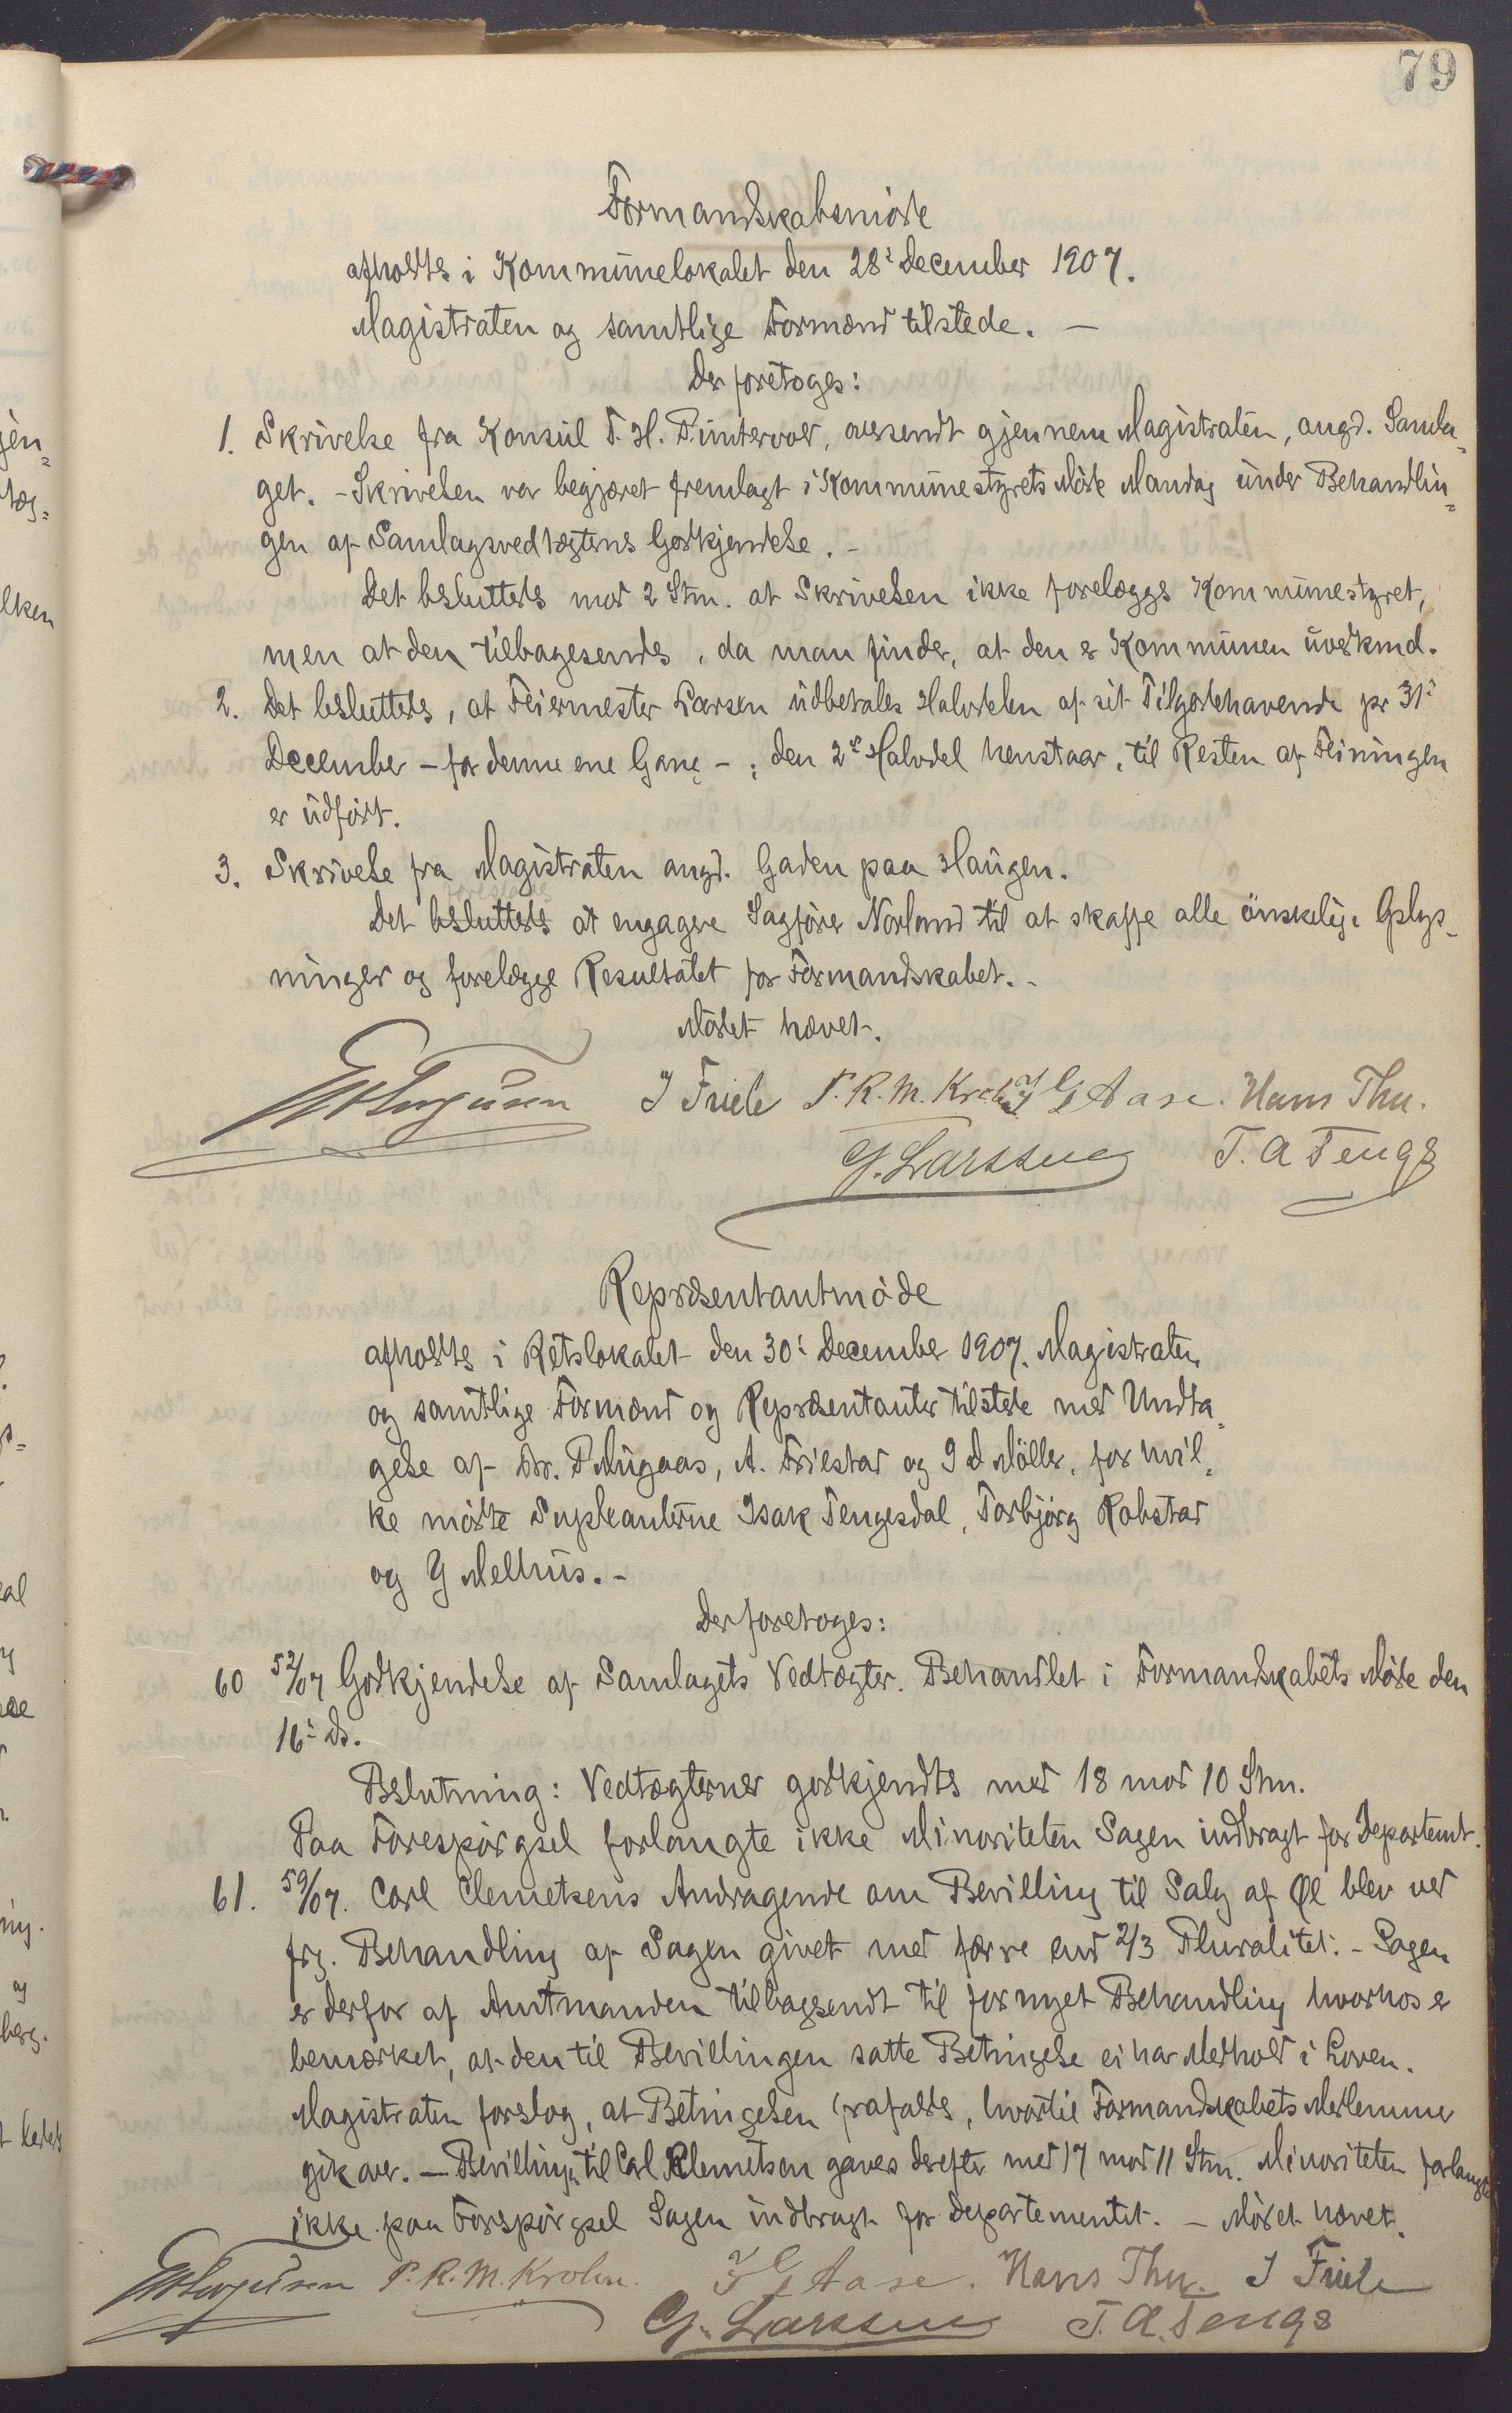 79
Formandskabsmöde
afholdtes i Kommunelokalet den 28: December 1907.
Magistraten og samtlige Formænd tilstede. —
Der foretoges:
1. Skrivelse fra Konsul T. H. Puntervold, oversendt gjennem Magistraten, angd. Samla-
get. - Skrivelsen var begjæret fremlagt i Kommunestyrets Möde Mandag under Behandlin-
gen af Samlagsvedtægtens Godkjendelse. -
Det besluttedes mod 2 Stm. at Skrivelsen ikke forelægges Kommunestyret,
men at den tilbagesendes, da man finder, at den er Kommunen uvedkmd.
2. Det besluttedes, at Feiermester Larsen udbetales Halvdelen af sit Tilgodehavende pr 31:
December - for denne ene Gang - ; den 2den Halvdel henstaar, til Resten af Feiningen
er udfört.
3. Skrivelse fra Magistraten angd. Gaden paa Haugen.
foreslaaes
Det besluttedes at engagere Sagförer Norland til at skaffe alle önskelige Oplys-
ninger og forelægge Resultatet for Formandskabet. -
Mödet hævet.
J Friele P. R. M. Krohn J G Aase. Hans Thu.
G. Larssen T. A Tengs
Repræsentantmöde
afholdtes i Retslokalet den 30: December 1907. Magistraten
og samtlige Formænd og Repræsentanter tilstede med Undta-
gelse af Dr. P Mugaas, A. Friestad og J A Möller, for hvil-
ke mödte Supleanterne Isak Tengesdal, Torbjörg Robstad
og G Melhus. -
Der foretoges:
60 52/07 Godkjendelse af Samlagets Vedtægter. Behandlet i Formandskabets Möde den
16: ds.
Beslutning: Vedtægterner godkjendtes med 18 mod 10 Stm.
Paa Forespörgsel forlangte ikke Minoriteten Sagen indbragt for Departemt.
61. 59/07. Carl Clemetsens Andragende om Bevilling til Salg af Øl blev ved
frg. Behandling af Sagen givet med færre end 2/3 Pluralitet. - Sagen
er derfor af Amtmanden tilbagesendt til fornyet Behandling hvorhos er
bemærket, at den til Bevillingen satte Betingelse ei har Medhold i Loven.
Magistraten forslog, at Betingelsen frafaldes, hvortil Formandskabets Medlemmer
gik over. — Bevilling til Carl Klemetsen gaves derefter med 17 mod 11 Stm. Minoriteten forlangte
ikke paa Forspörgsel Sagen indbragt for Departementet. - Mödet hævet.
P. R. M. Krohn. J G Aase. Hans Thu. J Friele
G. Larssen T. A. Tengs